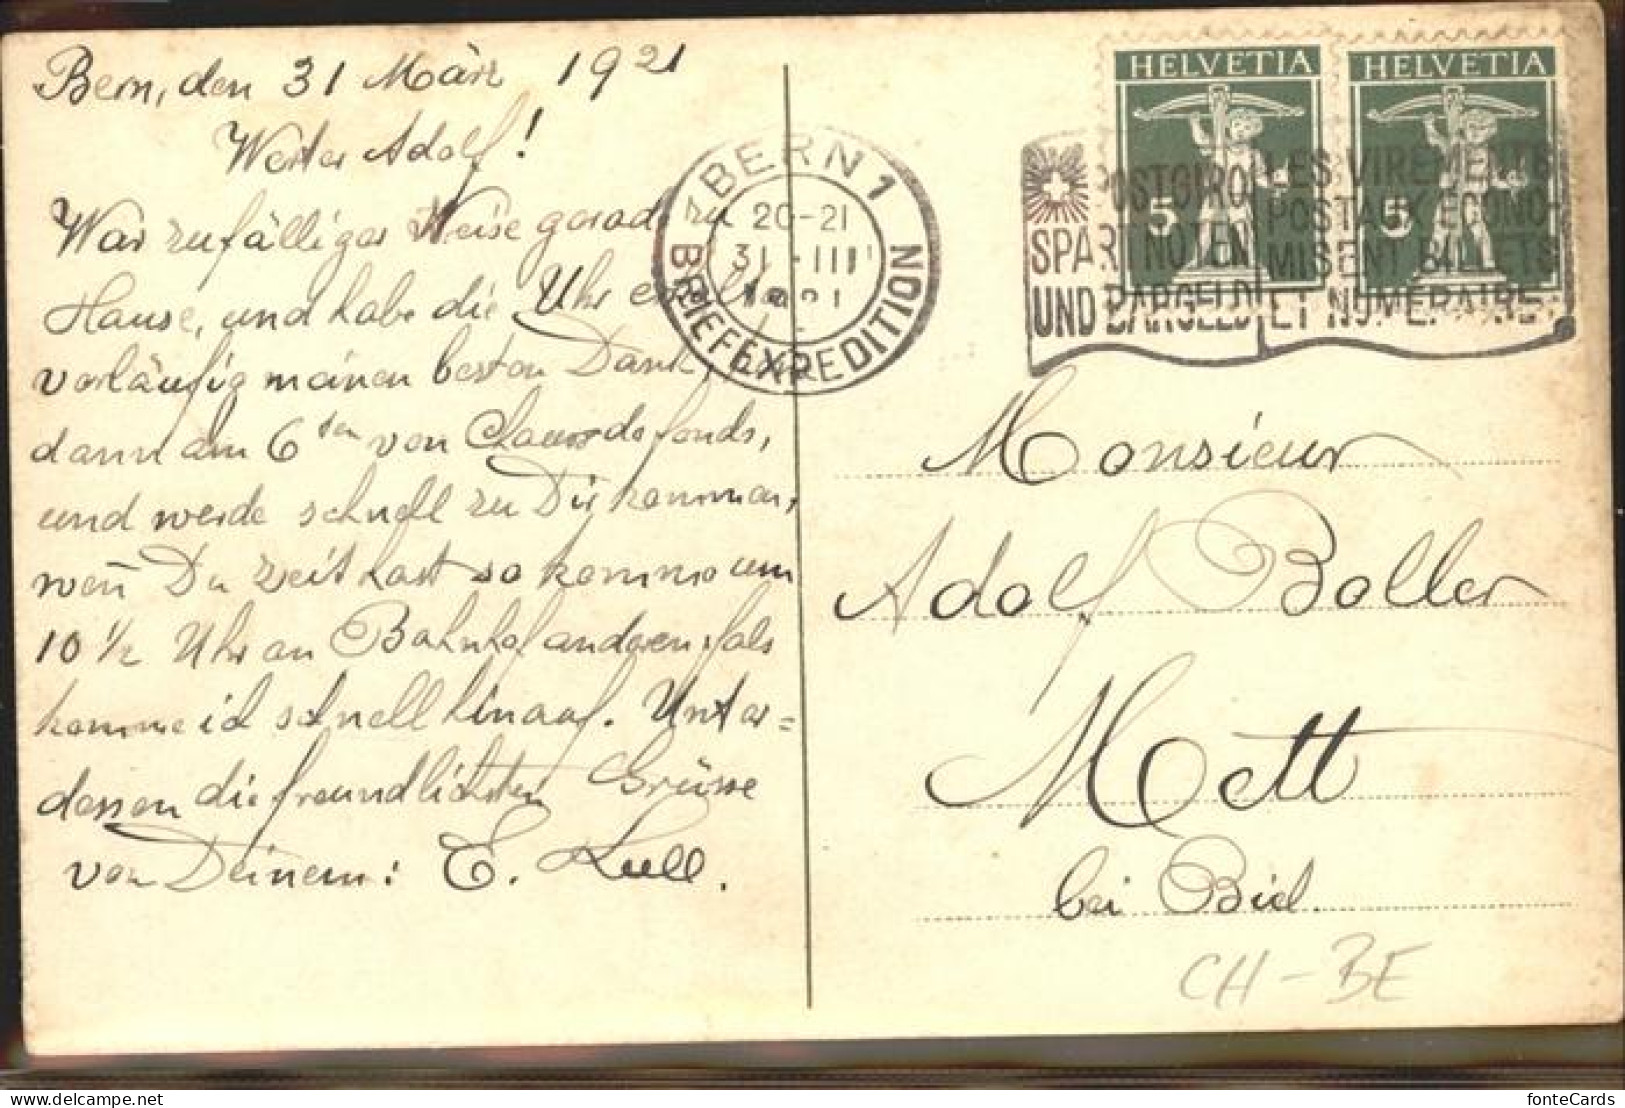 Bern, den 31 März 1921
Werter Adolf!
War zufälliger Weise gerade zu
Hause, und habe die Uhr
vorläufig meinen besten Dank,
dann am 6ten von Chauxdefonds,
und werde schnell zu Dir kommen,
wen̄ Du zeit hast so komme um
10 ½ Uhr an Bahnhof anderen:fals
komme ich schnell hinauf. Unter=
dessen die freundlichsten Grüsse
von Deinem: E.
BERN 1
20-21
31.III
1921
BRIEFEXPEDITION
HELVETIA
5
HELVETIA
5
POSTGIRO
SPART NOTEN
UND BARGELD
LES VIREMENTS
POSTAUX ÉCONO-
MISENT BILLETS
ET NUMÉRAIRE
Monsieur
Adolf Boller
Mett
bei Biel.
CH-BE
delcampe.net
fonteCards